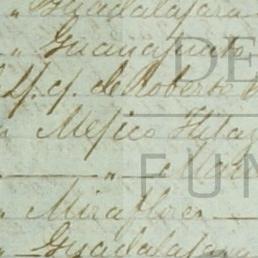 " Guadalajara
" Guanajuato
de Roberto
" Mejico
"
" Miraflores
" Guadalajara
DE
FUN